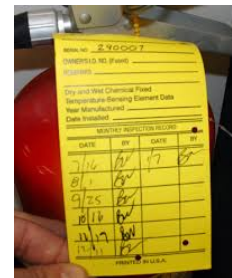 SERIAL NO. 290007
OWNER'S I.D. NO. (If used)
REMARKS
Dry and Wet Chemical Fixed
Temperature-Sensing Element Data
Year Manufactured
Date Installed
MONTHLY INSPECTION RECORD
DATE BY DATE BY
7/16
8/1
9/25
10/16
11/17
PRINTED IN U.S.A.